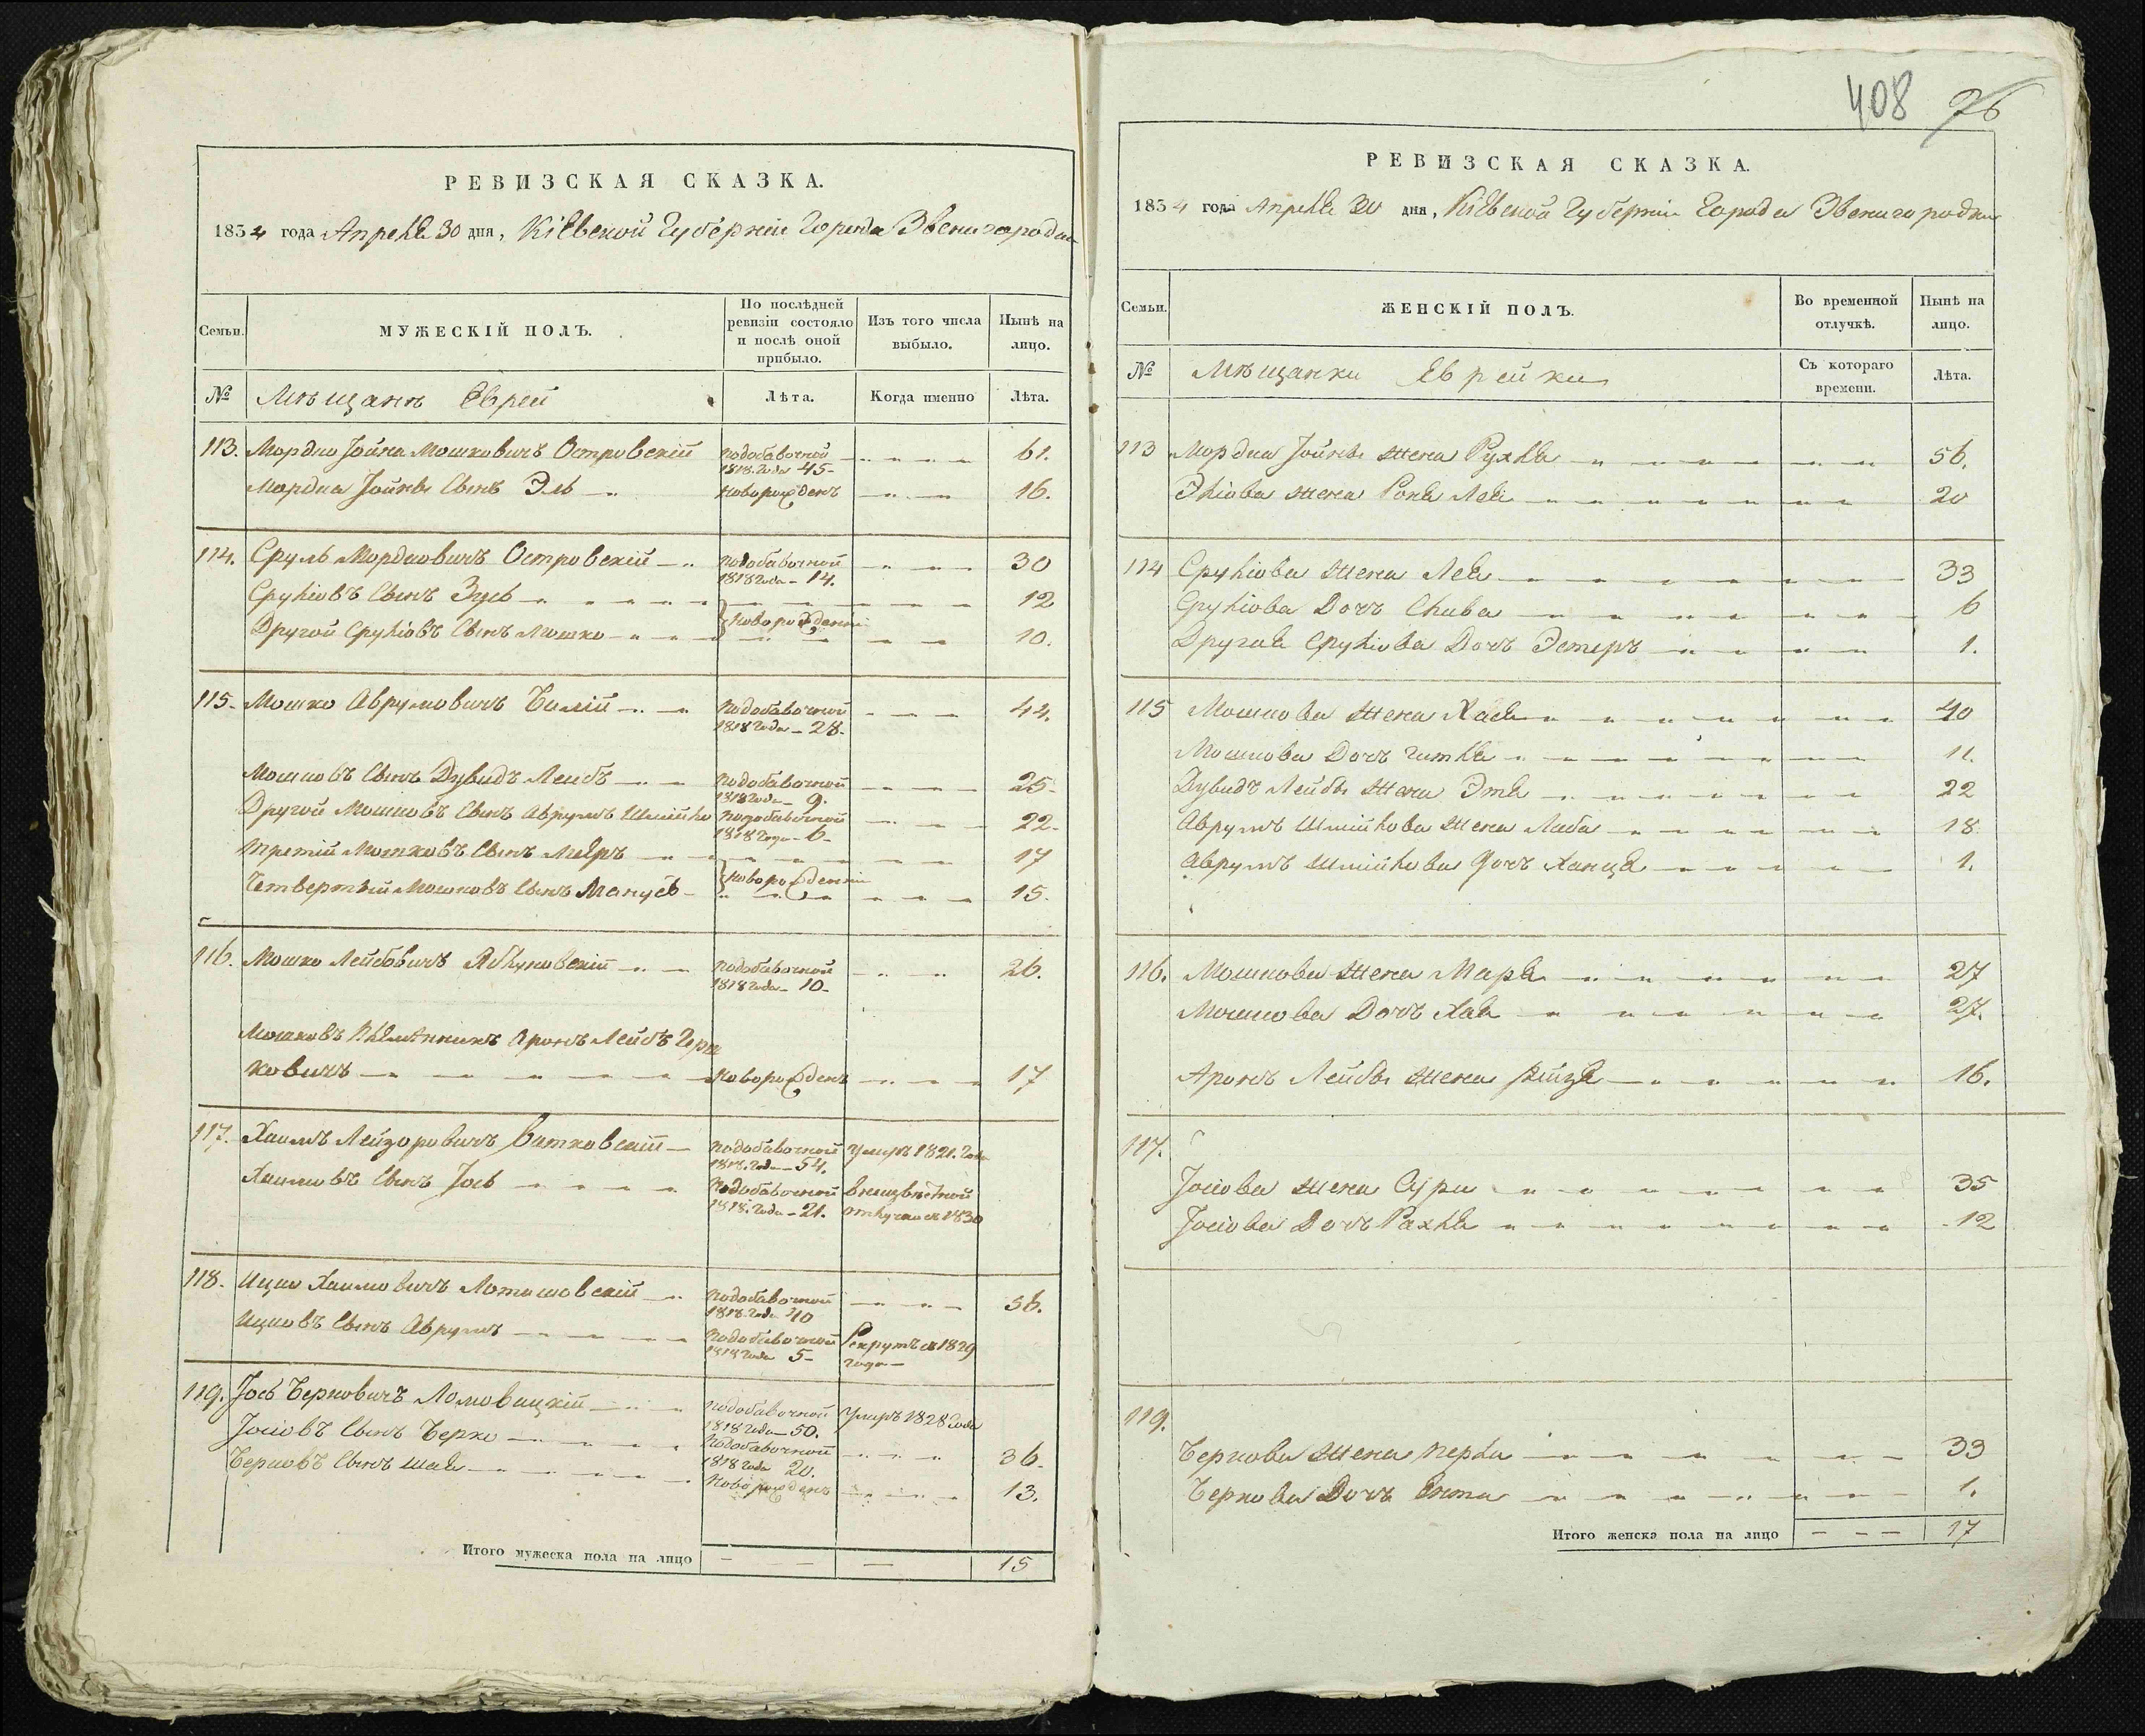 408 76
РЕВИЗСКАЯ СКАЗКА.
1834 года Апреля 30 дня, Кіевской Губерніи Города Звенигородки
Семьи.
МУЖЕСКІЙ ПОЛЪ.
По послѣдней ревизіи состояло и послѣ оной прибыло.
Изъ того числа выбыло.
Нынѣ на лицо.
№
Мѣщанъ Еврей
Лѣта.
Когда именно
Лѣта.
113. Мордко Іойна Мошковичъ Островскій подобавочной 1818. Года 45 - 61.
Мордка Іойны Сынъ Эль новорожденъ 16.
114. Сруль Мордковичъ Островскій подобавочной 1818 года - 14. 30
Сруліовъ Сынъ Зусь 12
Другой Сруліовъ Сынъ Мошко новорожденніи 10.
115. Мошко Аврумовичъ Билій подобавочной 1818 года - 28. 44.
Мошковъ Сынъ Дувидъ Лейбъ подобавочной 1818 года - 9. 25.
Другой Мошковъ Сынъ Аврумъ Шмилко подобавочной 1818 года - 6 - 22.
Третій Мошковъ Сынъ Меяръ 17
Четвертый Мошковъ Сынъ Манусъ новорожденніи 15.
116. Мошко Лейбовичъ Яблуновскій подобавочной 1818 года - 10 - 26.
Мошковъ Племянникъ Аронъ Лейбъ Гершковичъ новорожденъ 17
117. Хаимъ Лейзоровичъ Витковскій подобавочной 1818. года - 54. умеръ 1821. Года
Хаимовъ Сынъ Іось подобавочной 1818. Года - 21. в неизвѣстной отлучки съ 1830
118. Ицко Хаимовичъ подобавочной 1818. года 40 56.
Ицковъ Сынъ Аврумъ подобавочной 1818 года 5 - Рекрутъ съ 1829 года -
119. Іось Берковичъ Ломовацкій подобавочной 1818 года - 50. умеръ 1828 Года
Іосіовъ Сынъ Берко подобавочной 1818 года 20. 36.
Берковъ Сынъ Шая новорожденъ 13.
Итого мужеска пола на лицо 15
РЕВИЗСКАЯ СКАЗКА.
1834 года Апреля 30 дня, Кіевской Губерніи Города Звенигородки
Семьи.
ЖЕНСКІЙ ПОЛЪ.
Во временной отлучкѣ.
Нынѣ на лицо.
№
Мѣщанки Еврейки
Съ котораго времени.
Лѣта.
113 Мордка Іойны жена Рухля 56.
Эліова жена Лея 20
114 Сруліова жена Лея 33
Сруліова Дочь 6
Другая Сруліова Дочь Эстеръ 1.
115 Мошкова жена Хая 40
Мошкова Дочь Гитля 11.
Дувидъ Лейбы жена Этя 22
Аврумъ Шмилкова жена Либа 18
Аврумъ Шмилкова дочь Ханця 1.
116. Мошкова жена Маря 27
Мошкова Дочь Хая 27.
Аронъ Лейбы жена Рийзя 16.
117.
Іосіова жена Сура 35
Іосіова Дочь Рахля 12
119.
Беркова жена Перла 33
Беркова Дочь Ента 1.
Итого женска пола на лицо 17